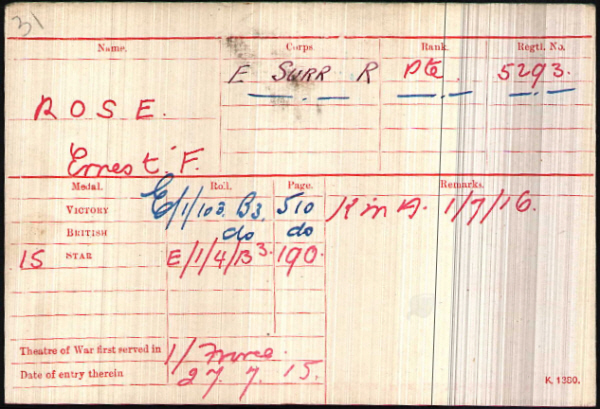 31
Name. Corps Rank. Regtl. No.
E SURR R Pte. 5293.
ROSE.
Ernest. F.
Medal. Roll. Page. Remarks.
VICTORY E/1/103. B3. 510 K in A. 1/7/16.
BRITISH do do
15 STAR E/1/4/B3. 190.
Theatre of War first served in 1/ France.
Date of entry therein 27. 7. 15.
K. 1380.